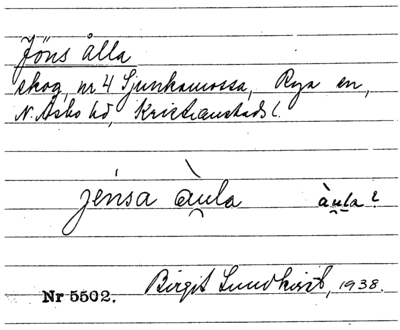 Jöns ålla
skog, nr 4 Sjunkamossa, Rya sn,
N. Åsbo hd, Kristianstads l.
jénsa àu̯la àu̯la?
Birgit Lundkvist, 1938.
Nr 5502.